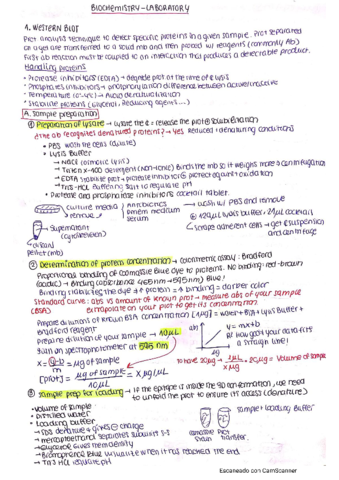 BIOCHEMISTRY-LABORATORY
1. WESTERN BLOT
Prot analysis technique to detect specific proteins in a given sample. Prot separated
on a gel are transferred to a solid mb and then probed w/ reagents (commonly Ab)
First ab reaction must be coupled to an interaction that produces a detectable product.
Handling proteins
• Protease inhibitors (EDTA) → degrade prot at the time of lysis
• Phosphates inhibitors → phosphorylation difference between active/inactive
• Temperature (0-4ºC) → Avoid denaturalitation
• Stabilize proteins (Glycerol, Reducing agents....)
A. Sample preparation
① Preparation of lysate → lysate the & release the prot to solubilization
¿the ab recognites denatured proteins? → Yes Reduced + denaturing conditions
• PBS wash the cells (Lavate)
• Lysis Buffer
→ NaCl (osmotic lysis)
→ Triton X-100 detergent (non-ionic)
→ EDTA stabilize prot + protease inhibitors protect against oxidation
→ Tris-HCl Buffering salt to regulate pH
• Protease and phosphatase inhibitors cocktail tablet.
culture media
→ remove
Antibiotics
DMEM medium
serum
→ wash w/ PBS and remove
→ scrape adherent cells → get suspension
and centrifuge
Supernatant
(cytoplasmic)
② Determination of protein concentration → colorimetric assay: Bradford
Proportional binding of Comassie Blue dye to proteins. No binding: red-brown
Binding stabilizes the dye ↑ protein = ↑ binding = darker color
Standard curve: abs vs amount of known prot → measure abs of your sample
(BSA) Extrapolate on your plot to get its concentration
Prepare dilutions of known BSA concentration
Bradford reagent
Prepare dilution of your sample → 10µL
Run on spectrophotometer at 595 nm
abs
µg
y = mx+b
R² how good your data fits
a straight line!
m
= µg of sample
[Prot] = µg of sample = X µg/µL
10µL
To have 20µg → 1µL · 20µg = Volume of sample
X µg
③ Sample prep for loading → if the epitope is inside the 3D conformation, we need
to unfold the prot to ensure its access (denature)
• Volume of sample
• Distilled water
• Loading buffer
→ SDS denature + gives ⊖ charge
→ mercaptoethanol separates subunits S-S
→ Glycerol gives more density
→ Bromophenol Blue visualize when it has reached the end
→ Tris HCl regulate pH
sample + loading buffer
Comassie
Stain
Prot
transfer
Escaneado con CamScanner